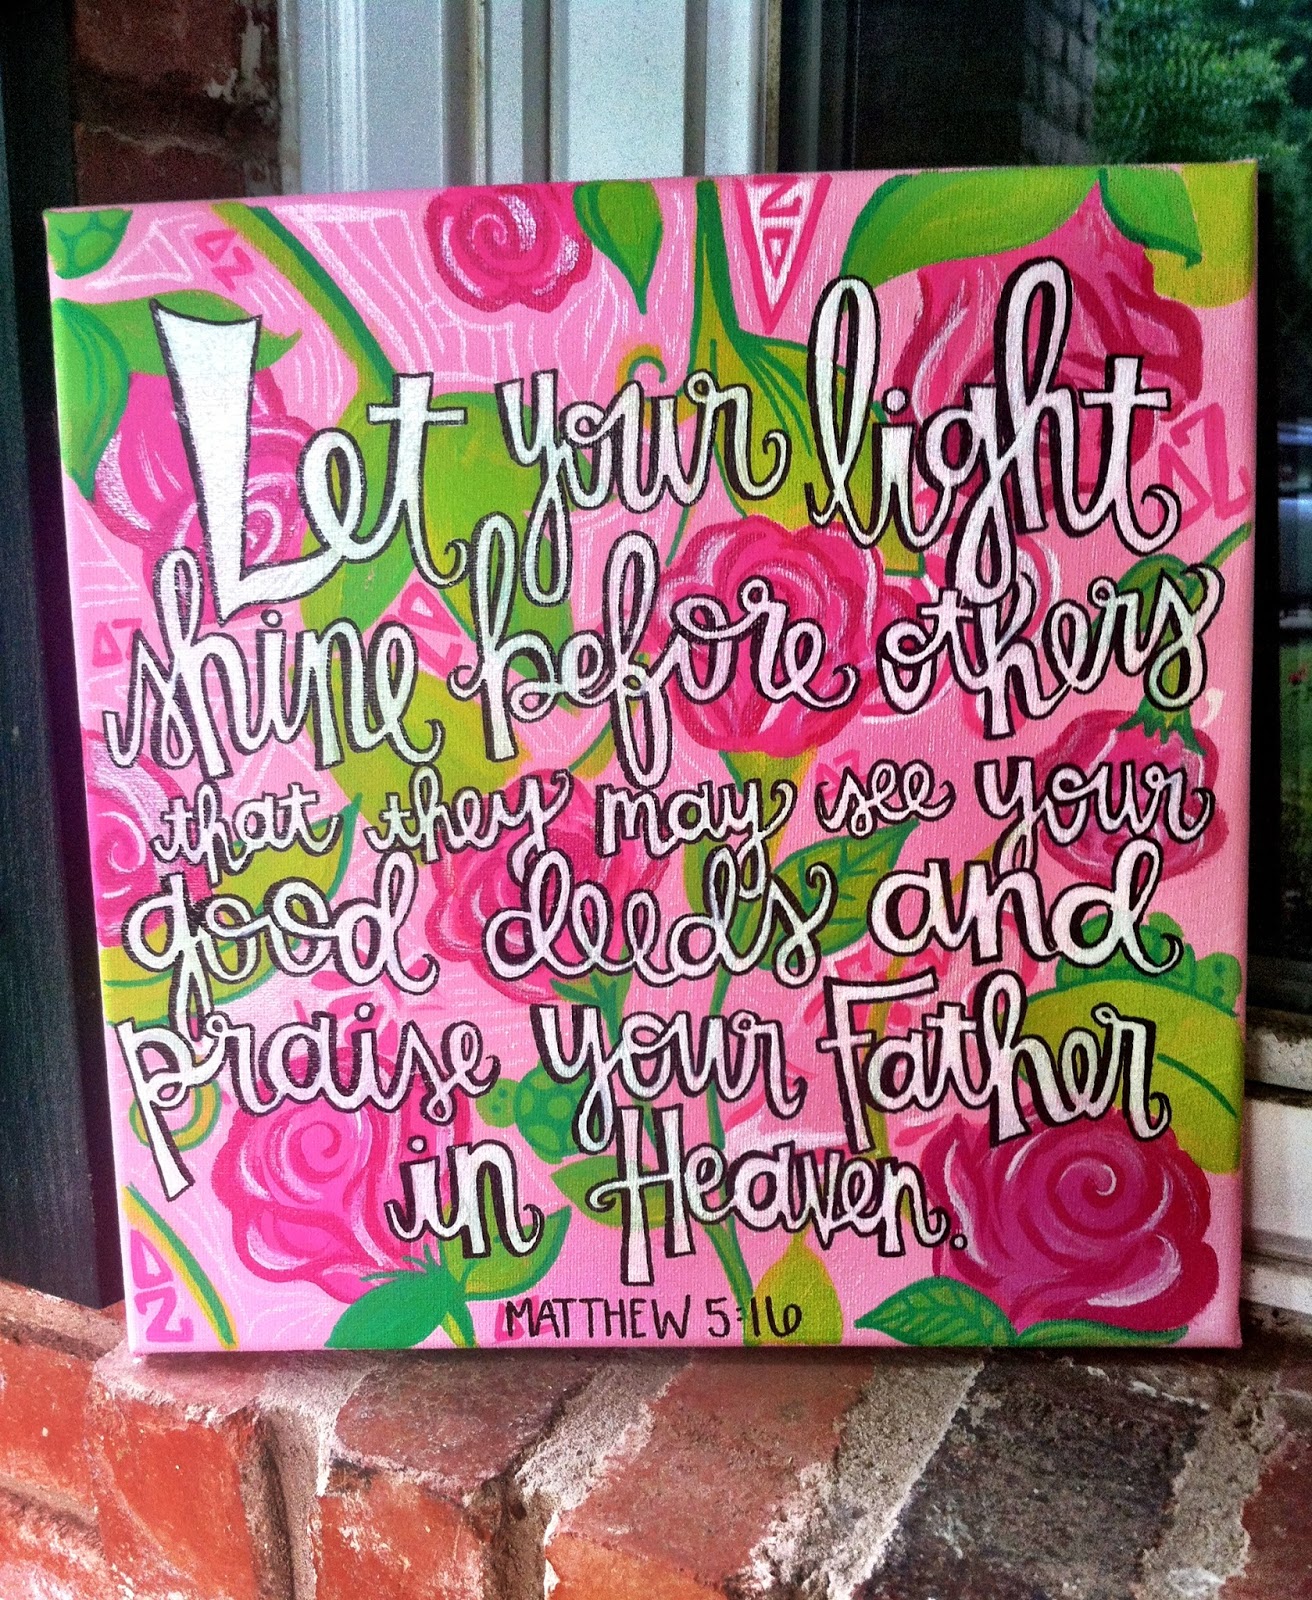 Let your light
shine before others,
that they may see your
good deeds and
praise your Father
in Heaven.
MATTHEW 5:16
ΔZ
ΔZ
ΔZ
ΔZ
ΔZ
ΔZ